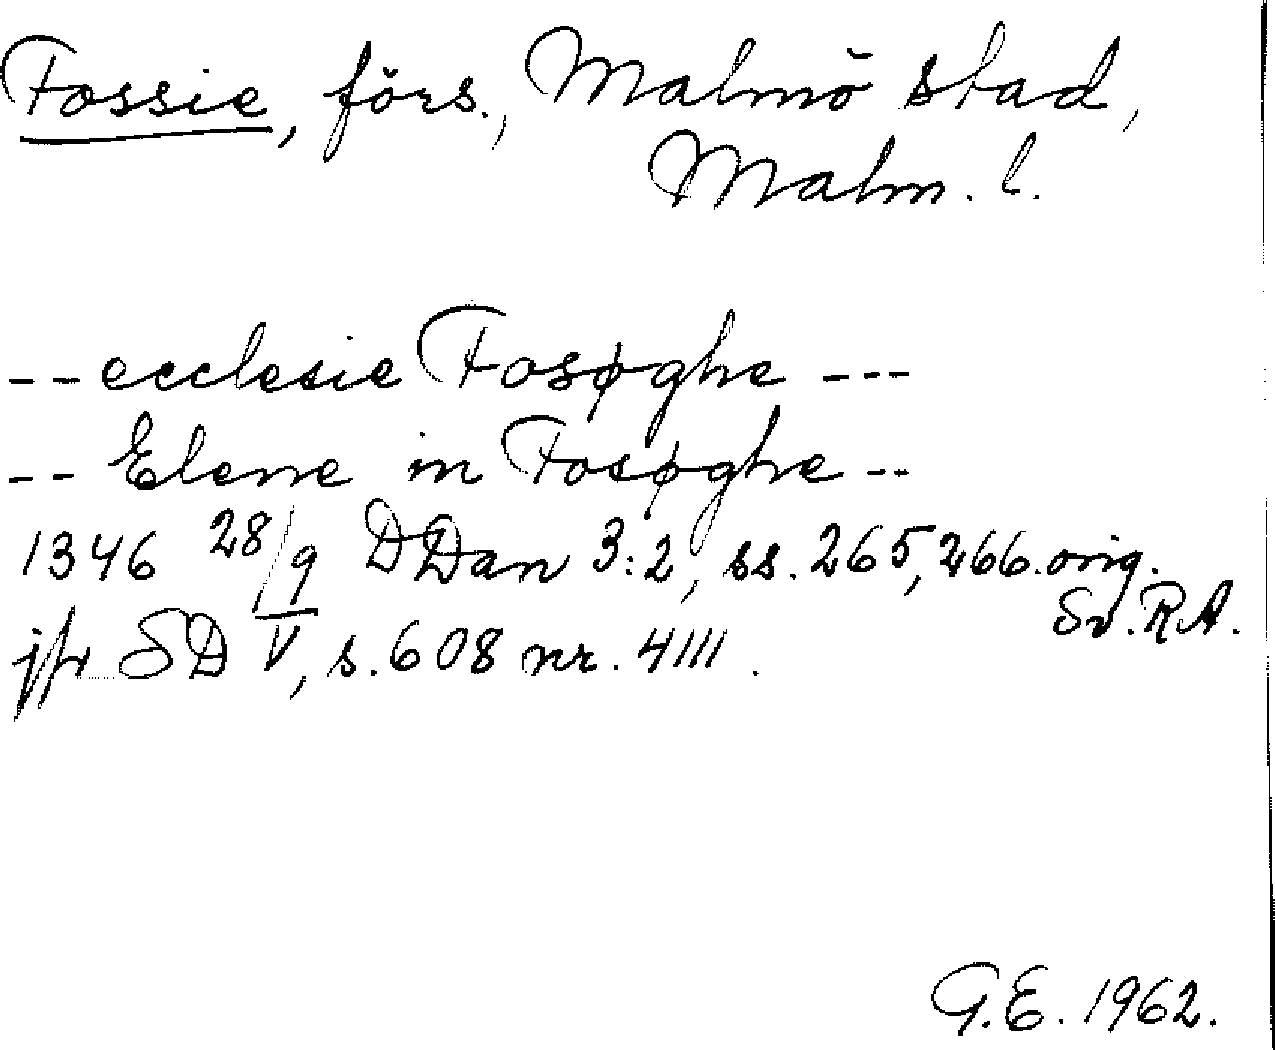 Fossie, förs., Malmö stad,
Malm. l.
-- ecclesie Fosøghe ---
-- Elene in Fosøghe --
1346 28/9 DDan 3:2, ss. 265, 266. orig.
Sv. RA.
jfr SD V, s. 608 nr. 4111.
G.E. 1962.